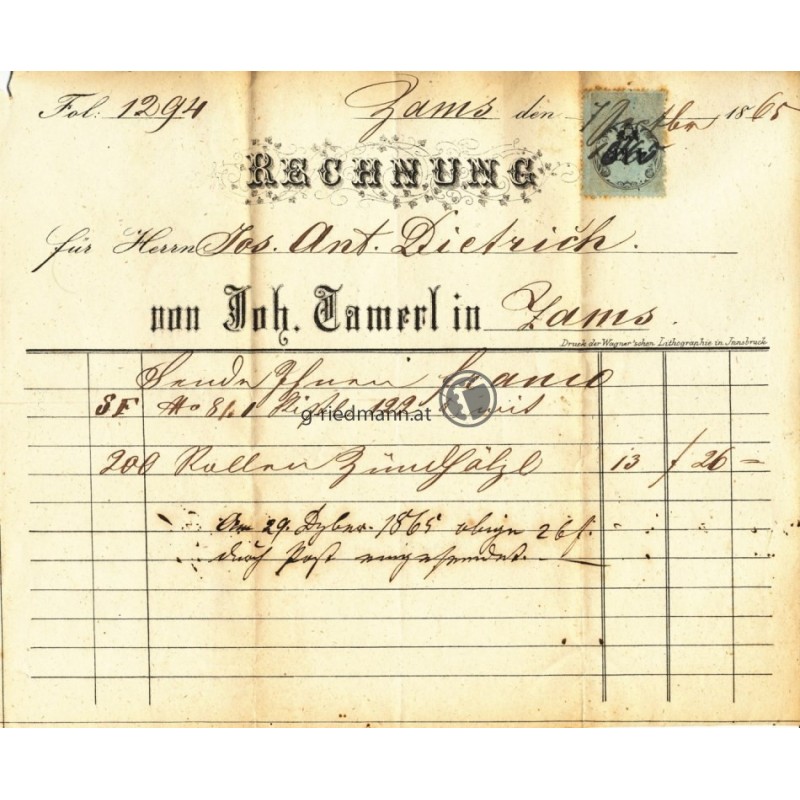 Fol: 1294 Zams den 18 65
RECHNUNG
für Herrn Jos. Ant. Dietrich.
von Joh. Tamerl in Zams.
Druck der Wagner'schen Lithographie in Innsbruck
Sende Ihnen franco
SF No
g-riedmann.at
200 Rollen Zündhölzl 13 f 26 =
Am 29. Dzber. 1865 obige 26 f.
durch Post eingesendet.